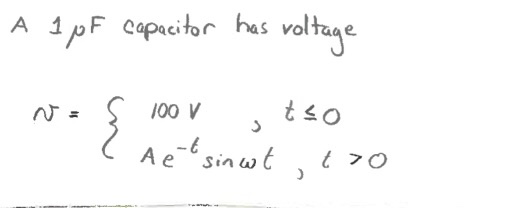 A 1 μF capacitor has voltage
v = { 100 V , t ≤ 0
A e^-t sin ωt , t > 0